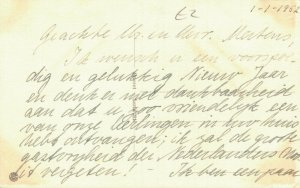 E2
1-1-1952
Geachte Mr. en Mvr. Mertens,
Ik wensch u een voorspoe-
dig en gelukkig Nieuw Jaar
en denk er met dankbaarheid
aan dat u zoo vriendelijk een
van onze Leerlingen in uw huis
hebt ontvangen; ik zal de groote
gastvrijheid der Nederlanders
it vergeten! Ik ben een paar